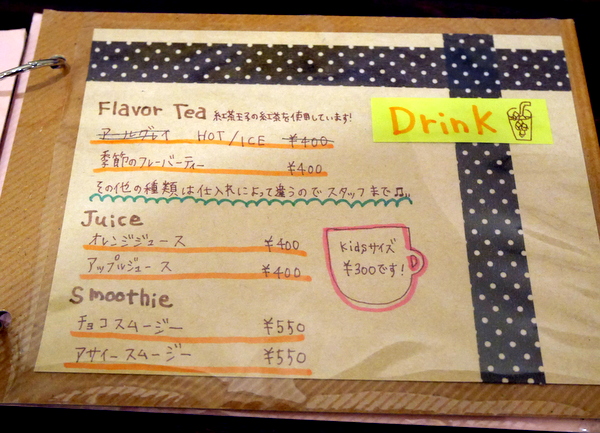 Drink
Flavor Tea 紅茶王子の紅茶を使用しています!
アールグレイ HOT/ICE ¥400
季節のフレーバーティー ¥400
その他の種類は仕入れによって違うのでスタッフまで♫
Juice
オレンジジュース ¥400
アップルジュース ¥400
Kidsサイズ
¥300です!
Smoothie
チョコスムージー ¥550
アサイースムージー ¥550